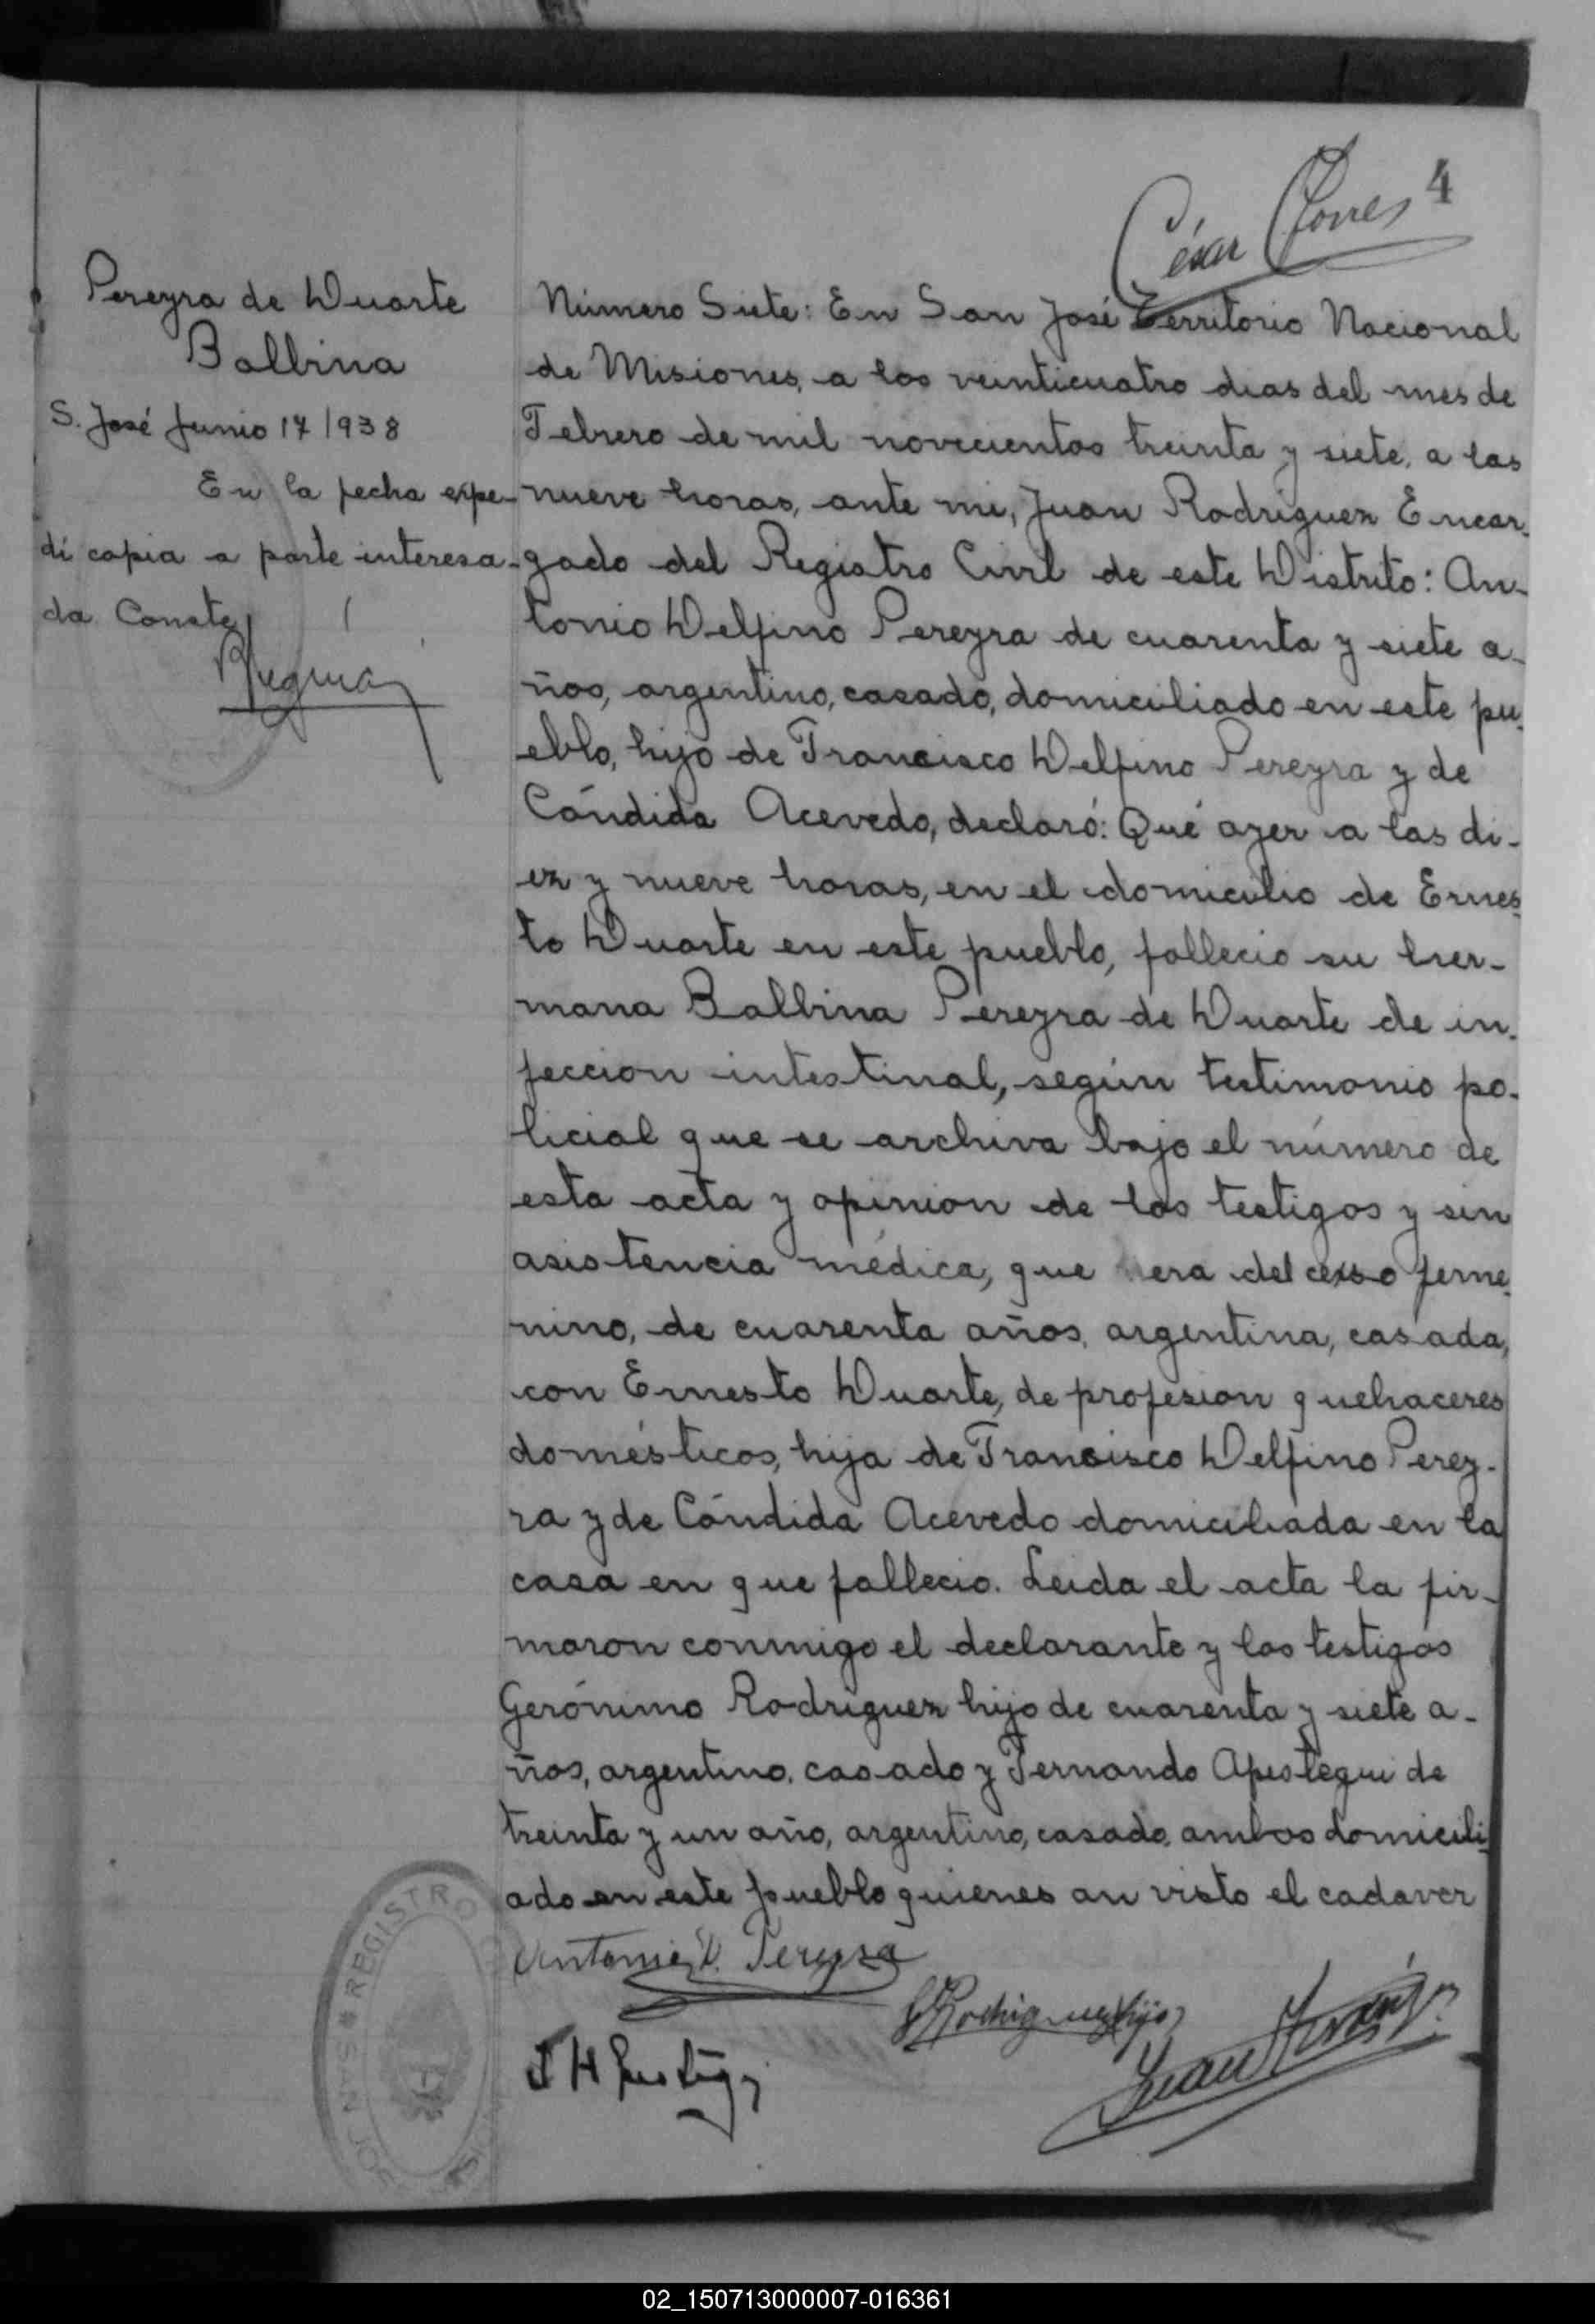 4
César Torres
Pereyra de Duarte
Balbina
S. José Junio 17/938
En la fecha expe-
dí copia a parte interesa-
da Conste
Número Siete: En San José Territorio Nacional
de Misiones, a los veinticuatro dias del mes de
Febrero de mil novecientos treinta y siete, a las
nueve horas, ante mi, Juan Rodriguez Encar-
gado del Registro Civil de este Distrito: An-
tonio Delfino Pereyra de cuarenta y siete a-
ños, argentino, casado, domiciliado en este pu-
eblo, hijo de Francisco Delfino Pereyra y de
Cándida Acevedo, declaró: Qué ayer a las di-
ez y nueve horas, en el domicilio de Ernes-
to Duarte en este pueblo, fallecio su her-
mana Balbina Pereyra de Duarte de in-
feccion intestinal, según testimonio po-
licial que se archiva bajo el número de
esta acta y opinion de los testigos y sin
asistencia médica, que era del cexso feme-
nino, de cuarenta años, argentina, casada,
con Ernesto Duarte, de profesion quehaceres
domésticos, hija de Francisco Delfino Perey-
ra y de Cándida Acevedo domiciliada en la
casa en que fallecio. Leida el acta la fir-
maron conmigo el declarante y los testigos
Gerónimo Rodriguez hijo de cuarenta y siete a-
ños, argentino, casado y Fernando Apestegui de
treinta y un año, argentino, casado, ambos domicili-
ado en este pueblo quienes an visto el cadaver
Antonio D. Pereyra
G Rodriguez hijo
Juan
REGISTRO
SAN JOS
02_150713000007-016361